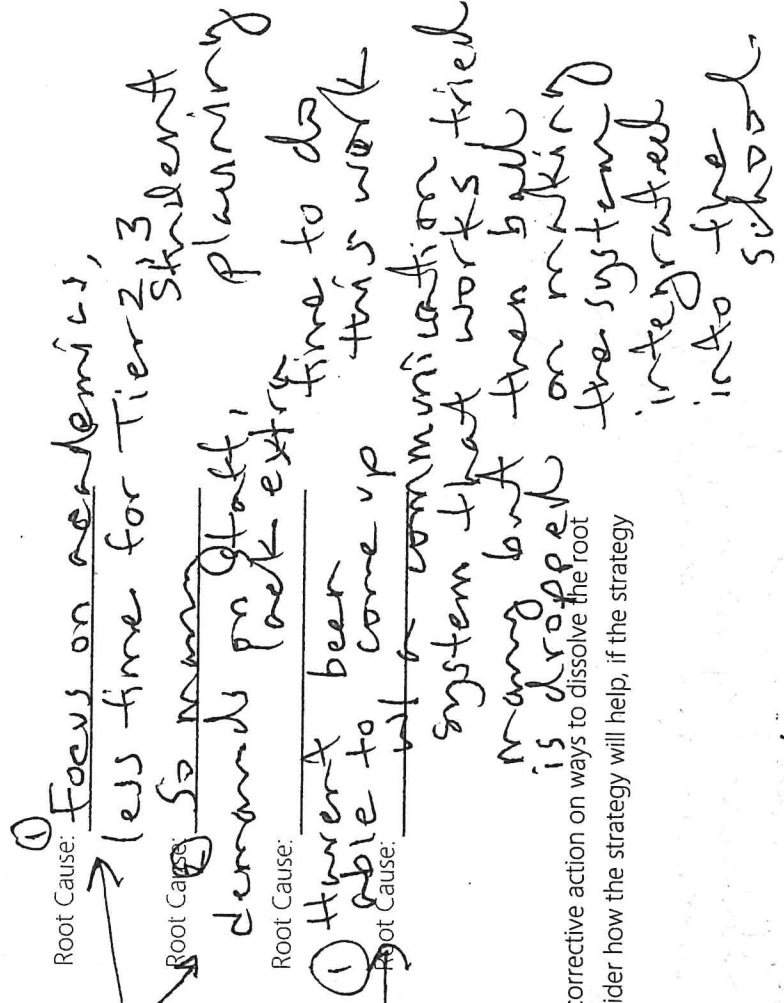 ①
Root Cause: Focus on academics,
less time for Tier 2, 3
student
planning
Root Cause: ② So many staff,
demands on pack extra
time to do
this work
Root Cause:
① Haven't been
able to come up
Root Cause: w/ a communication
system that works, tried
many but then ball
is dropped on making
the system
integrated
into the
school.
corrective action on ways to dissolve the root
ider how the strategy will help, if the strategy